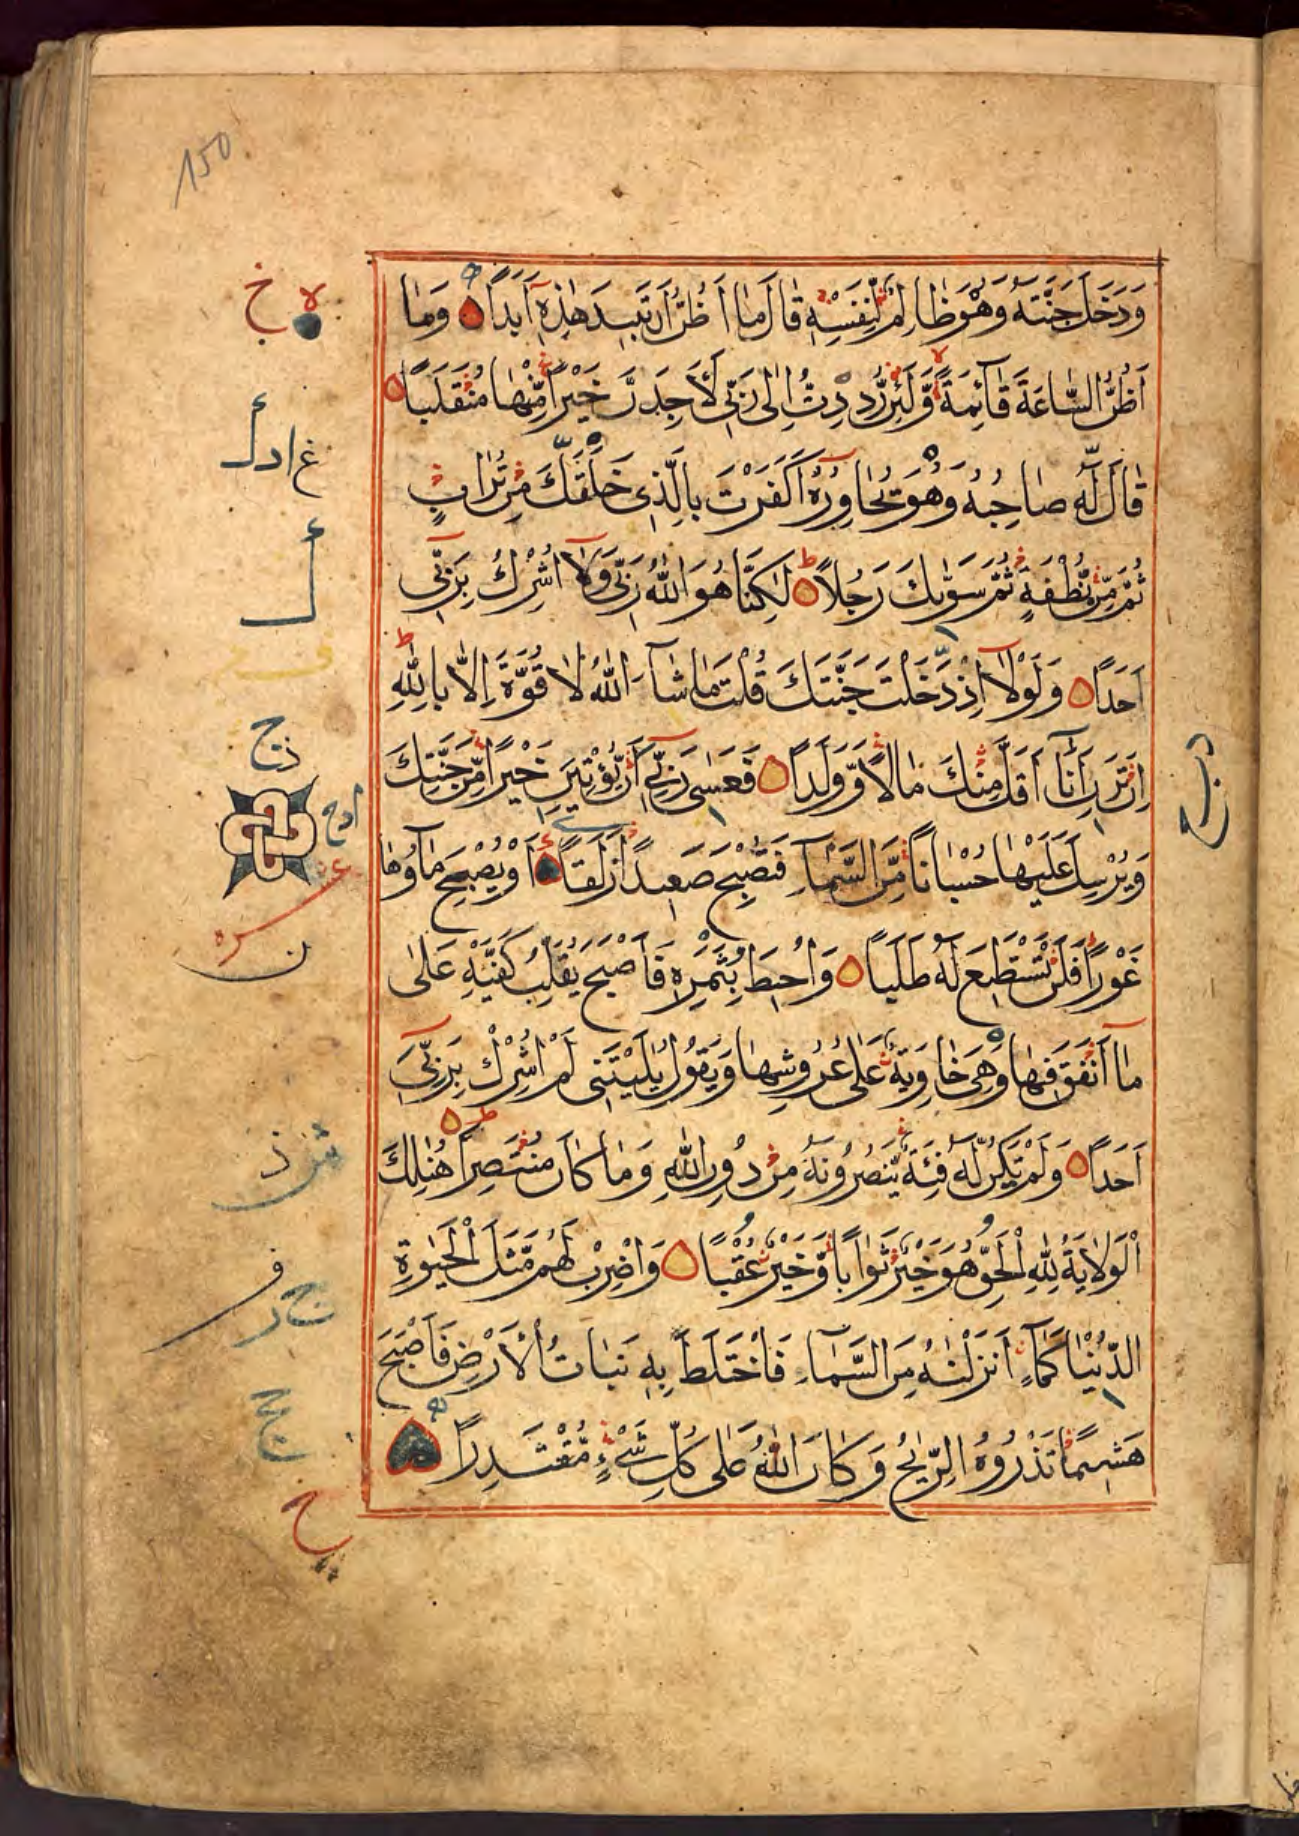 150
وَدَخَلَ جَنَّتَهُ وَهُوَ ظَالِمٌ لِّنَفْسِهِ قَالَ مَا أَظُنُّ أَن تَبِيدَ هٰذِهِ أَبَدًا وَمَا
أَظُنُّ السَّاعَةَ قَآئِمَةً وَّلَئِن رُّدِدتُّ اِلٰى رَبِّي لَأَجِدَنَّ خَيْرًا مِّنْهَا مُنْقَلَبًا
قَالَ لَهُ صَاحِبُهُ وَهُوَ يُحَاوِرُهُ اَكَفَرْتَ بِالَّذِي خَلَقَكَ مِنْ تُرَابٍ
ثُمَّ مِنْ نُّطْفَةٍ ثُمَّ سَوّٰىكَ رَجُلًا لٰكِنَّا هُوَ اللّٰهُ رَبِّي وَلَا اُشْرِكُ بِرَبِّي
اَحَدًا وَلَوْلَا اِذْ دَخَلْتَ جَنَّتَكَ قُلْتَ مَا شَآءَ اللّٰهُ لَا قُوَّةَ اِلَّا بِاللّٰهِ
اِنْ تَرَنِ اَنَا اَقَلَّ مِنْكَ مَالًا وَّوَلَدًا فَعَسٰى رَبِّي اَنْ يُّؤْتِيَنِ خَيْرًا مِّنْ جَنَّتِكَ
وَيُرْسِلَ عَلَيْهَا حُسْبَانًا مِّنَ السَّمَآءِ فَتُصْبِحَ صَعِيدًا زَلَقًا اَوْ يُصْبِحَ مَآؤُهَا
غَوْرًا فَلَنْ تَسْتَطِيعَ لَهُ طَلَبًا وَاُحِيطَ بِثَمَرِهِ فَاَصْبَحَ يُقَلِّبُ كَفَّيْهِ عَلٰى
مَا اَنْفَقَ فِيهَا وَهِيَ خَاوِيَةٌ عَلٰى عُرُوشِهَا وَيَقُولُ يٰلَيْتَنِي لَمْ اُشْرِكْ بِرَبِّي
اَحَدًا وَلَمْ تَكُنْ لَّهُ فِئَةٌ يَّنْصُرُونَهُ مِنْ دُونِ اللّٰهِ وَمَا كَانَ مُنْتَصِرًا هُنَالِكَ
الْوَلَايَةُ لِلّٰهِ الْحَقِّ هُوَ خَيْرٌ ثَوَابًا وَّخَيْرٌ عُقْبًا وَاضْرِبْ لَهُمْ مَّثَلَ الْحَيٰوةِ
الدُّنْيَا كَمَآءٍ اَنْزَلْنٰهُ مِنَ السَّمَآءِ فَاخْتَلَطَ بِهِ نَبَاتُ الْاَرْضِ فَاَصْبَحَ
هَشِيمًا تَذْرُوهُ الرِّيٰحُ وَكَانَ اللّٰهُ عَلٰى كُلِّ شَيْءٍ مُّقْتَدِرًا